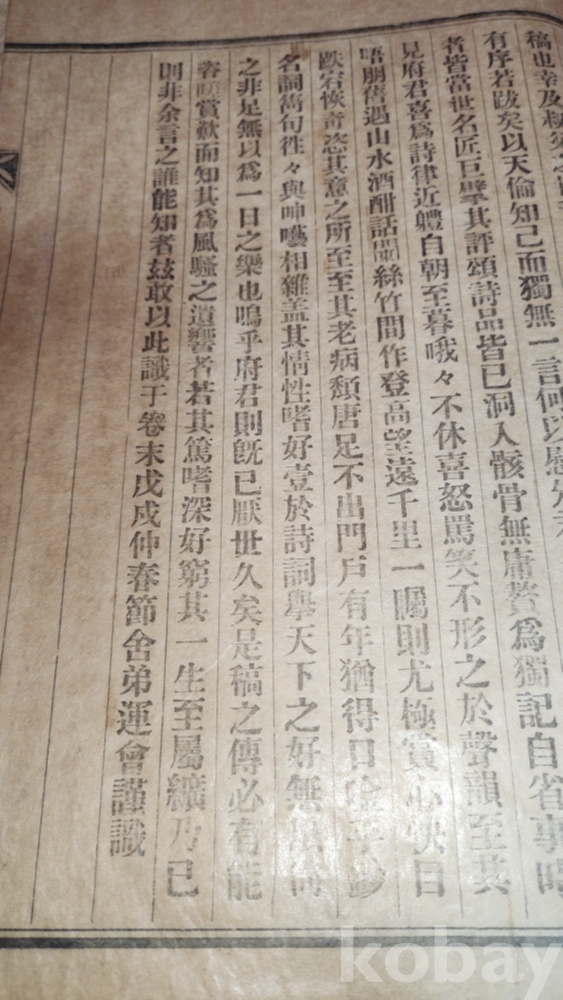 稿也幸及
有序若跋矣以天倫知己而獨無一言何以慰
者皆當世名匠巨擘其評頌詩品皆已洞入骸骨無庸贅焉獨記自省事時
見府君喜爲詩律近體自朝至暮哦々不休喜怒罵笑不形之於聲韻至其
唔朋舊遇山水酒酣話闌絲竹間作登高望遠千里一矚則尤極賞心快目
跌宕恢奇恣其意之所至至其老病頹唐足不出門戶有年猶得口
名詞雋句徃々與呻囈相雜盖其情性嗜好壹於詩詞擧天下之好無
之非足無以爲一日之樂也嗚乎府君則旣已厭世久矣是稿之傳必有能
咨嗟賞歎而知其爲風騷之遺響者若其篤嗜深好窮其一生至屬纊乃已
則非余言之誰能知者玆敢以此識于卷末戊戌仲春節舍弟運會謹識
kobay